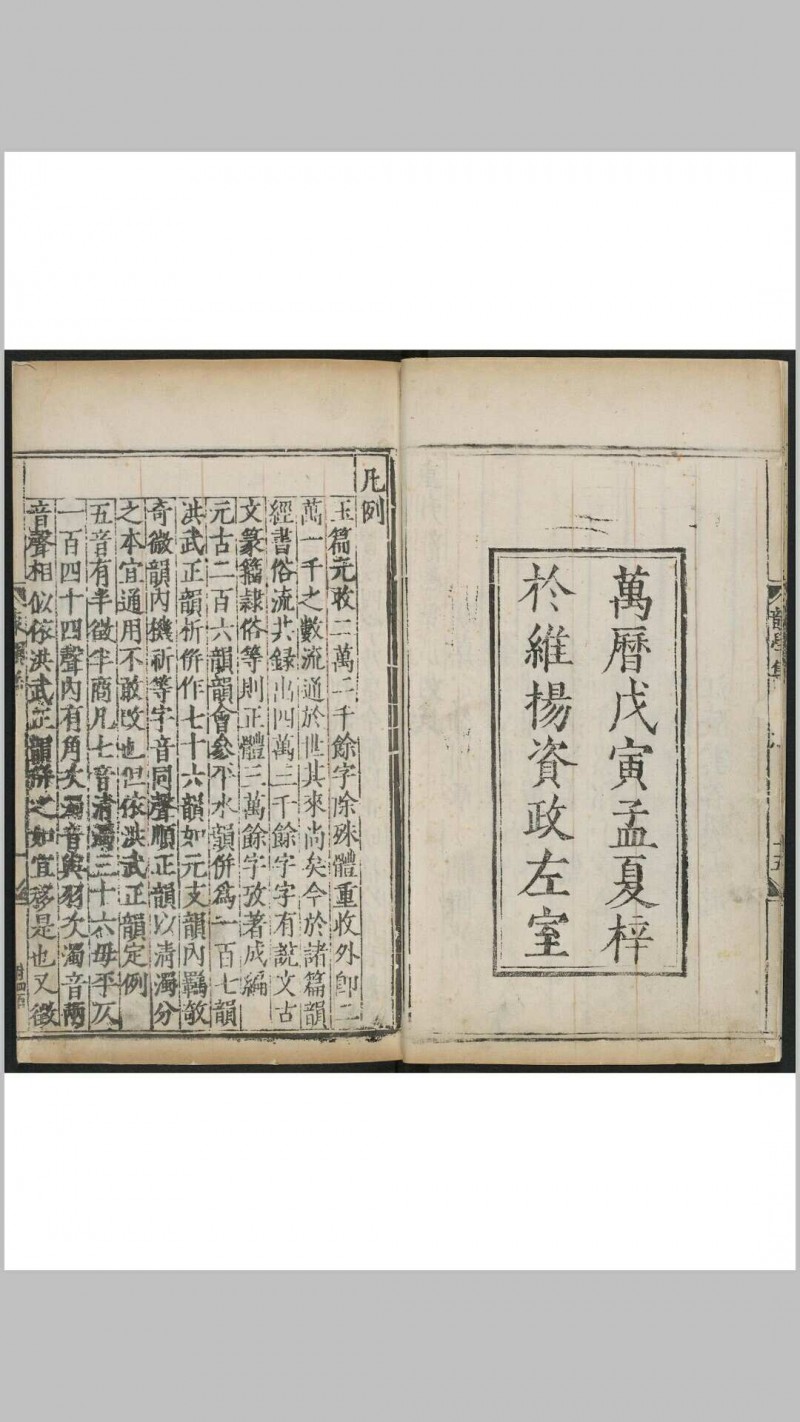 萬曆戊寅孟夏梓
於維揚資政左室
凡例
玉篇元收二萬二千餘字除殊體重收外卽二
萬一千之數流通於世其來尚矣今於諸篇韻
經書俗流共録出四萬三千餘字字有說文古
文篆籒隷俗等則正體三萬餘字攷著成編
元古二百六韻韻會參平水韻併爲一百七韻
洪武正韻析併作七十六韻如元支韻內羈敧
奇微韻內機祈等字音同聲順正韻以清濁分
之本宜通用不敢改也但依洪武正韻定例
五音有半徵半商凡七音清濁三十六毋平仄
一百四十四聲內有角次濁音與羽次濁音兩
音聲相似依洪武正韻併之如宜移是也又徵